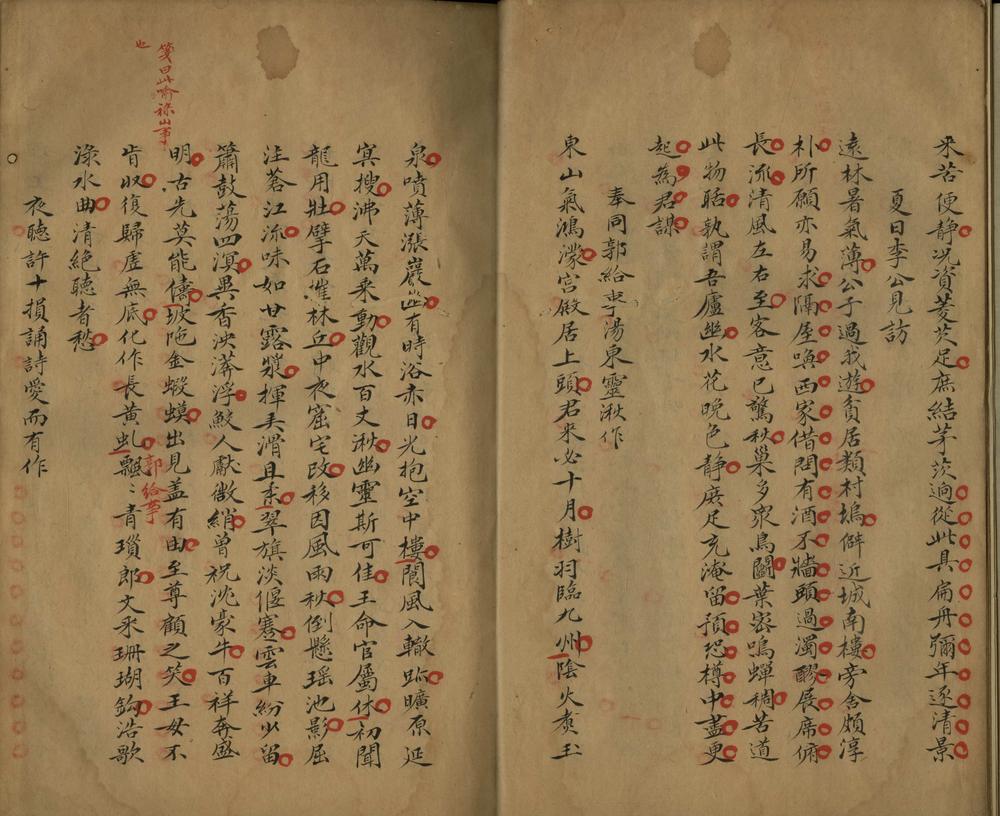 來苦便静况資菱芡足庶結茅茨逈從此具扁舟彌年逐清景
夏日李公見訪
遠林暑氣薄公子過我遊貧居類村塢僻近城南樓旁舍頗淳
朴所願亦易求隔屋喚西家借問有酒不牆頭過濁醪展席俯
長流清風左右至客意已驚秋巢多衆鳥鬬葉密鳴蟬稠苦道
此物聒孰謂吾廬幽水花晚色静庶足充淹留預恐樽中盡更
起為君謀
奉同郭給事湯東靈湫作
東山氣鴻濛宫殿居上頭君來必十月樹羽臨九州陰火煮玉
泉噴薄漲巖幽有時浴赤日光抱空中樓閬風入轍跡曠原延
冥搜沸天萬乘動觀水百丈湫幽靈斯可佳王命官屬休初聞
龍用壮擘石摧林丘中夜窟宅改移因風雨秋倒懸瑶池影屈
注蒼江流味如甘露漿揮弄滑且柔翠旗淡偃蹇雲車紛少留
簫鼓蕩四溟異香泱漭浮鮫人獻微綃曾祝沈豪牛百祥奔盛
明古先莫能儔坡陁金蝦蟆出見盖有由至尊顧之笑王母不
肯収復歸虚無底化作長黄虬飄〻青瑣郎文采珊瑚鈎浩歌
渌水曲清絶聽者愁
夜聽許十損誦詩愛而有作
箋曰此喻祿山事
也
郭給事